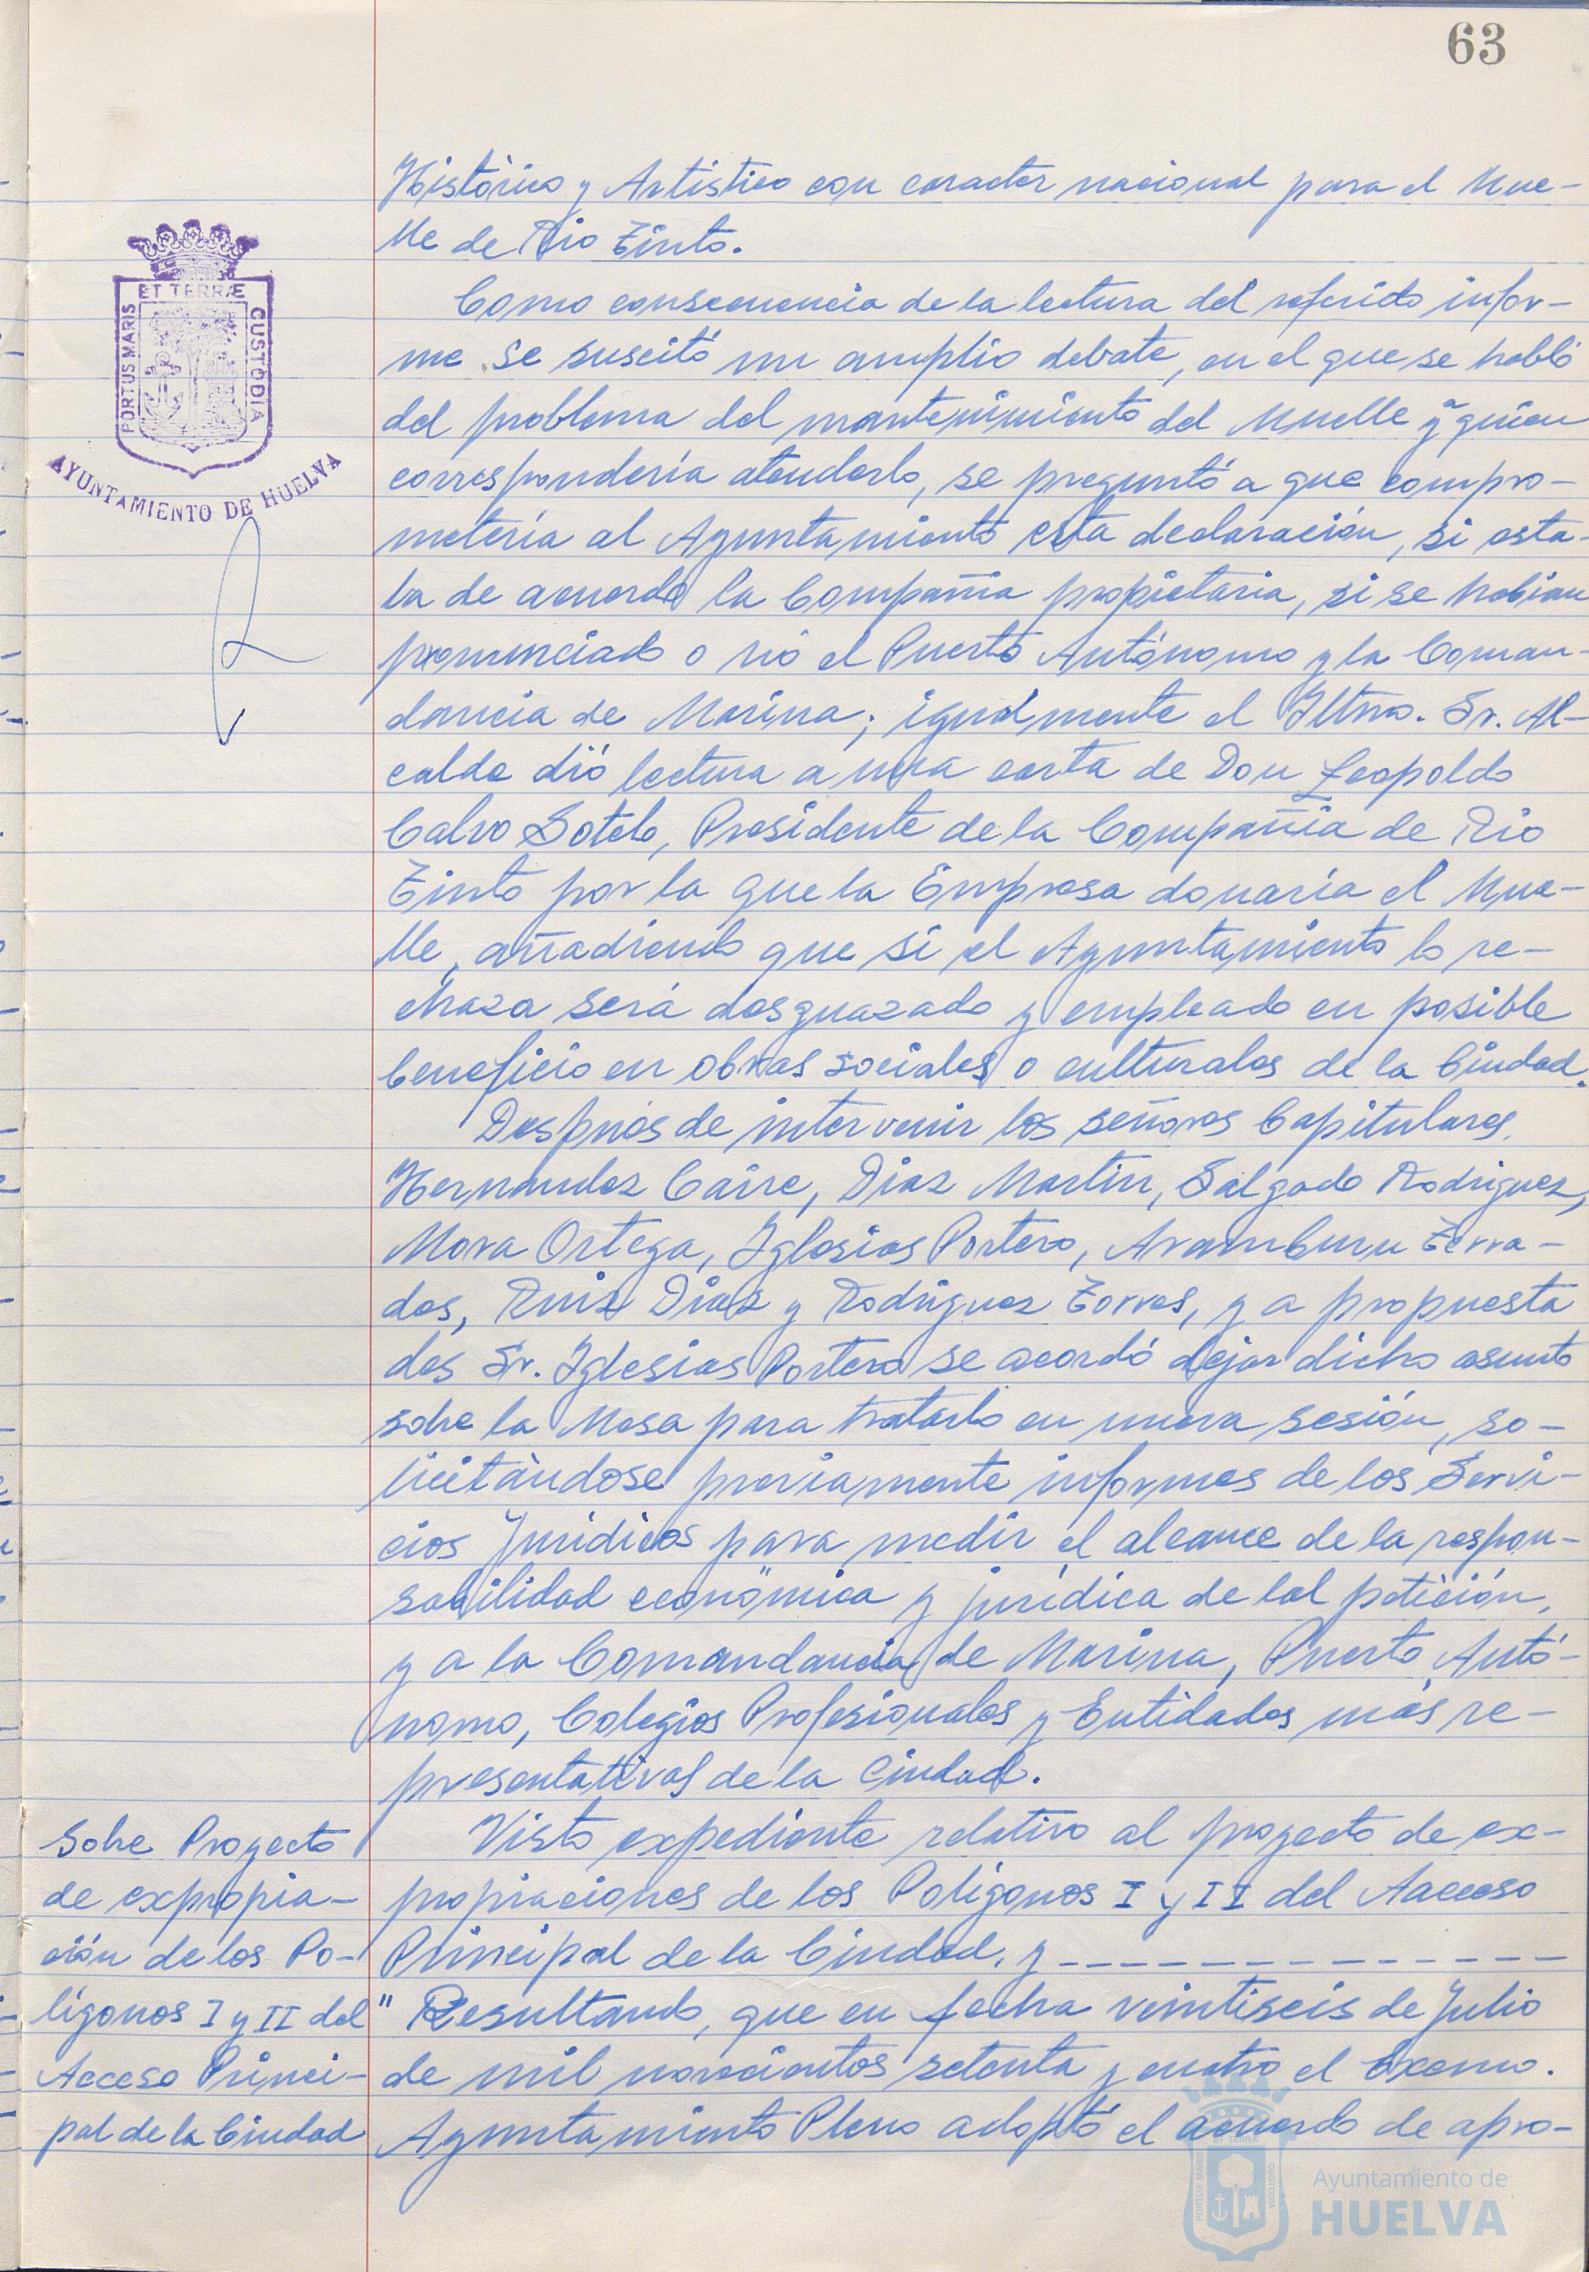 63
Histórico y Artistico con caracter nacional para el Mue-
lle de Rio Tinto.
ET TERRÆ
PORTUS MARIS
CUSTODIA
AYUNTAMIENTO DE HUELVA
Como consecuencia de la lectura del referido infor-
me se suscitó un amplio debate, en el que se habló
del problema del mantenimiento del Muelle y a quien
correspondería atenderlo, se preguntó a que compro-
metería al Ayuntamiento esta declaración, si esta-
ba de acuerdo la Compañia propietaria, si se habian
pronunciado o nó el Puerto Autónomo y la Coman-
dancia de Marina; igualmente el Iltmo. Sr. Al-
calde dió lectura a una carta de Don Leopoldo
Calvo Sotelo, Presidente de la Compañia de Rio
Tinto por la que la Empresa donaría el Mue-
lle, añadiendo que si el Ayuntamiento lo re-
chaza será desguazado y empleado en posible
beneficio en obras sociales o culturales de la Ciudad.
Después de intervenir los señores Capitulares,
Hernandez Caire, Diaz Martin, Salgado Rodriguez,
Mora Ortega, Iglesias Portero, Aramburu Terra-
dos, Ruiz Diaz y Rodriguez Torres, y a propuesta
des Sr. Iglesias Portero se acordó dejar dicho asunto
sobre la Mesa para tratarlo en nueva sesión, so-
licitándose previamente informes de los Servi-
cios Juridicos para medir el alcance de la respon-
sabilidad económica y jurídica de tal petición,
y a la Comandancia de Marina, Puerto Autó-
nomo, Colegios Profesionales y Entidades más re-
presentativas de la Ciudad.
Sobre Proyecto
de expropia-
ción de los Po-
lígonos I y II del
Acceso Princi-
pal de la Ciudad
Visto expediente relativo al proyecto de ex-
propiaciones de los Polígonos I y II del Aacceso
Principal de la Ciudad, y — — — — — — — — — — —
" Resultando, que en fecha veintiseis de Julio
de mil novecientos setenta y cuatro el Excmo.
Ayuntamiento Pleno adoptó el acuerdo de apro-
PORTUS MARIS
ET TERRÆ
CUSTODIA
Ayuntamiento de
HUELVA